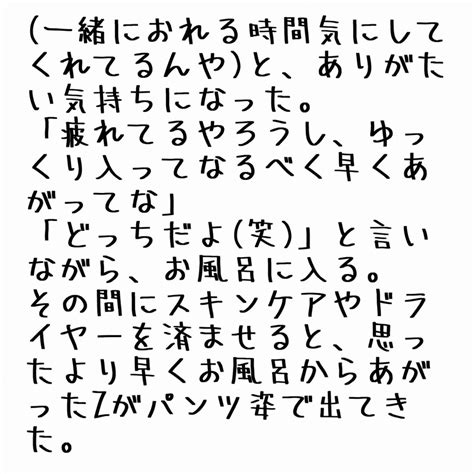 (一緒におれる時間気にして
くれてるんや)と、ありがた
い気持ちになった。
「疲れてるやろうし、ゆっ
くり入ってなるべく早くあ
がってな」
「どっちだよ(笑)」と言い
ながら、お風呂に入る。
その間にスキンケアやドラ
イヤーを済ませると、思っ
たより早くお風呂からあが
ったZがパンツ姿で出てき
た。